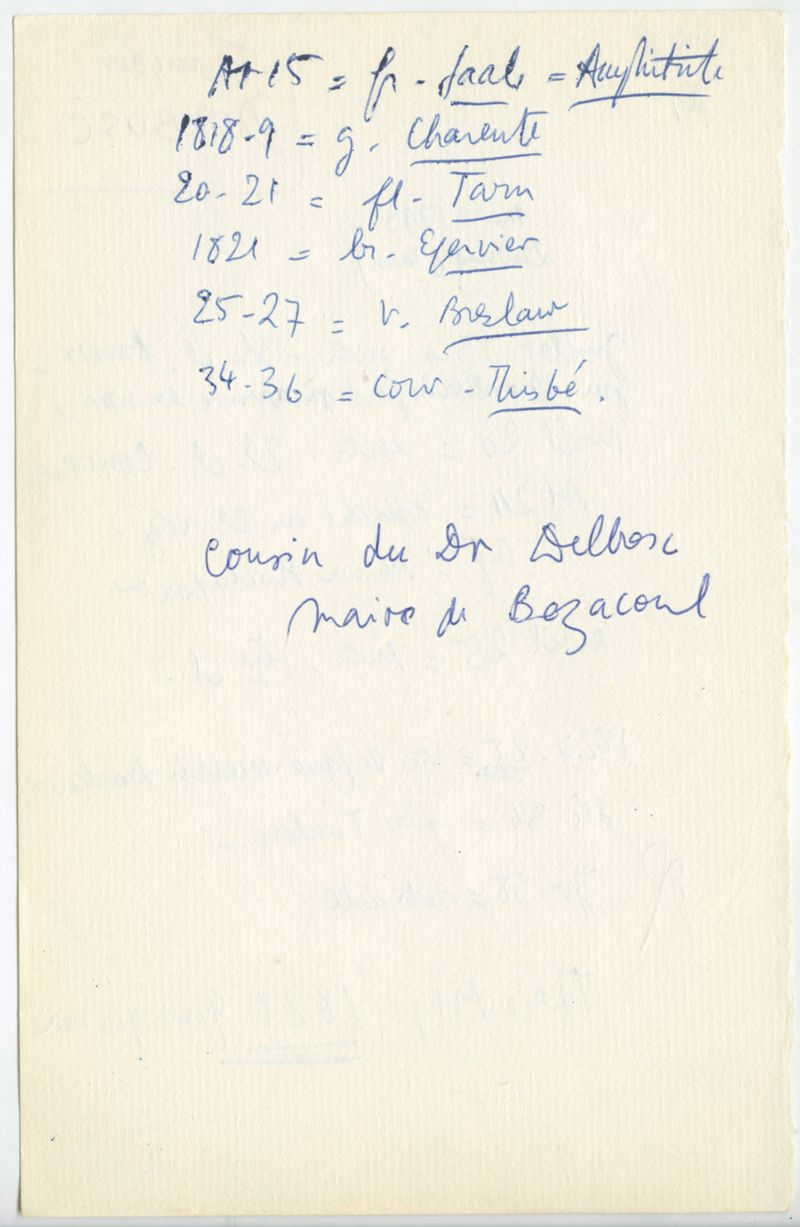 AA-15 = fr - Saale = Amphitrite
1818-9 = g. Charente
20-21 = fl - Tarn
1821 = br - Epervier
25-27 = v. Breslaw
34-36 = corv - Thisbé.
cousin du Dr Delbosc
maire de Bozacoul